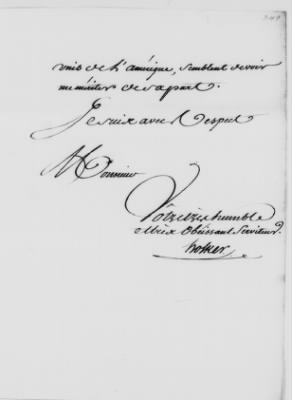 unis de L'amérique, semblent devoir
me mériter de sa part.
Je suis avec Respect
Monsieur
Vôtre très humble
et très Obéissant Serviteur